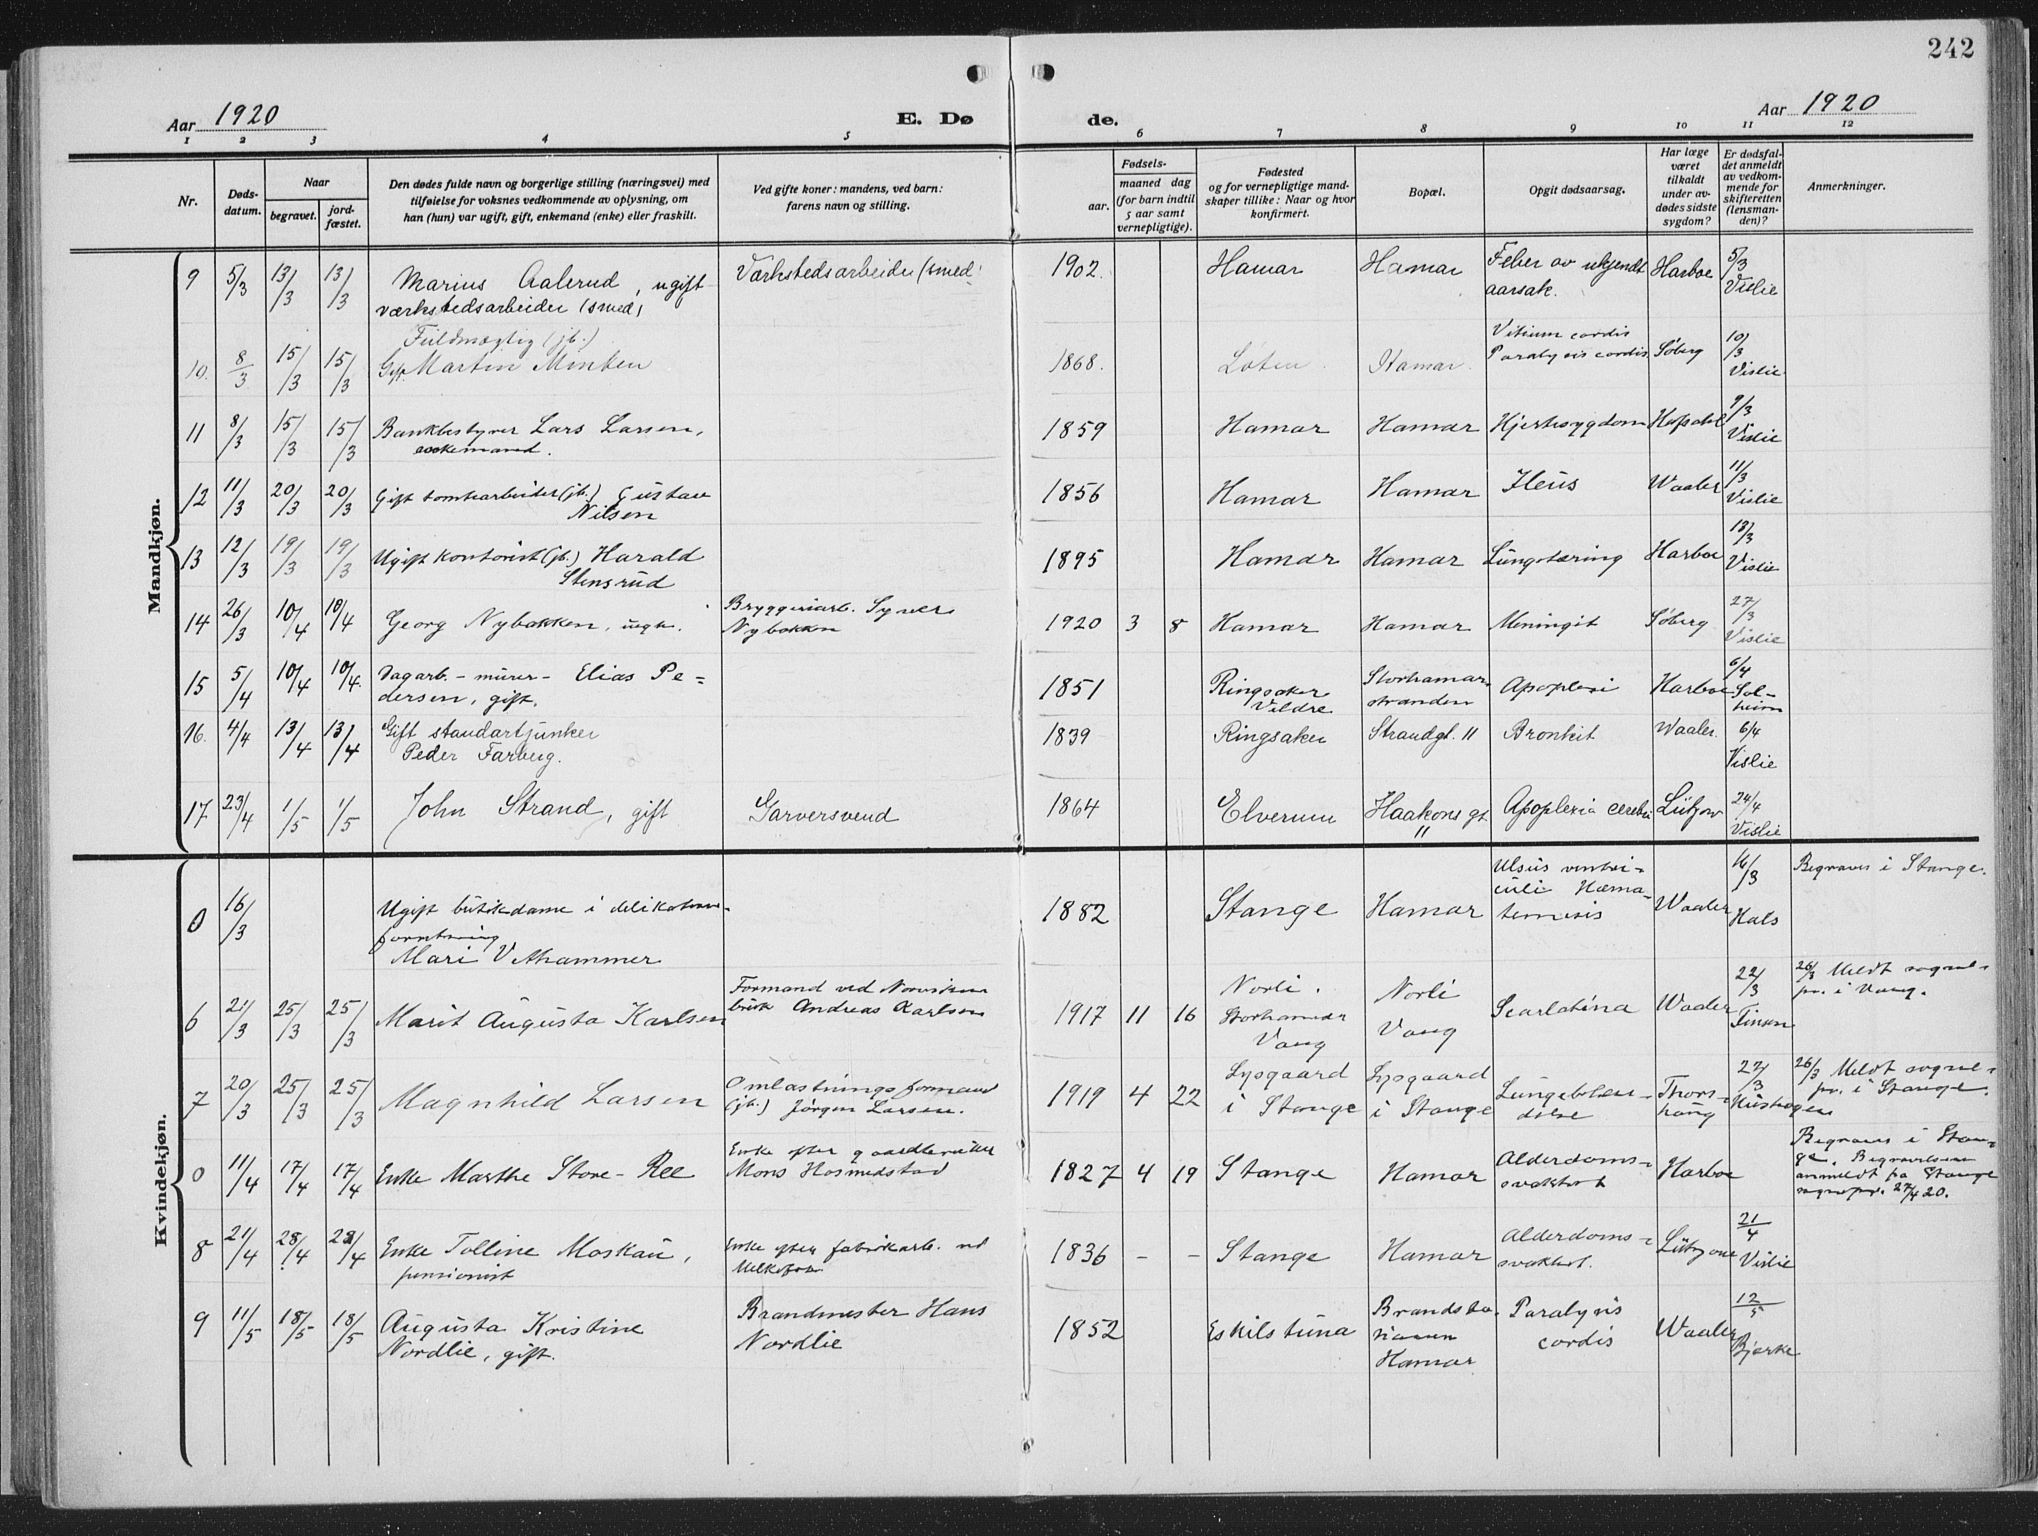 242
Aar 1920
E. Dø
de.
Aar 1920
1 2 3 4 5 6 7 8 9 10 11 12
Nr.
Døds-
datum.
Naar
begravet.
jord-
fæstet.
Den dødes fulde navn og borgerlige stilling (næringsvei) med
tilføielse for voksnes vedkommende av oplysning, om
han (hun) var ugift, gift, enkemand (enke) eller fraskilt.
Ved gifte koner: mandens, ved barn:
farens navn og stilling.
Fødsels-
aar.
maaned dag
(for barn indtil
5 aar samt
vernepligtige).
Fødested
og for vernepligtige mand-
skaper tillike: Naar og hvor
konfirmert.
Bopæl.
Opgit dødsaarsag.
Har læge
været
tilkaldt
under av-
dødes sidste
sygdom?
Er dødsfal-
det anmeldt
av vedkom-
mende for
skifteretten
(lensman-
den)?
Anmerkninger.
Mandkjøn.
9 5/3 13/3 13/3 Marius Aalerud, ugift Værkstedsarbeider (smed) 1902. Hamar Hamar Feber av ukjendt Harboe 5/3
værkstedsarbeider (smed) aarsak. Vislie
Fuldmægtig (jb.) Vitium cordis 10/3
10. 8/3 15/3 15/3 Gift Martin Minken 1868. Løten Hamar. Paralysis cordis Søberg Vislie
11 8/3 15/3 15/3 Bankbestyrer Lars Larsen, 1859 Hamar Hamar Hjertesygdom Hofsdal 9/3
enkemand. Vislie
12 11/3 20/3 20/3 Gift tomtearbeider (jb.) Gustav 1856 Hamar Hamar Ileus Waaler 11/3
Nilsen Vislie
13 12/3 19/3 19/3 Ugift kontorist (jb.) Harald 1895 Hamar Hamar Lungetæring Harboe 13/3
Stensrud Vislie
14 26/3 10/4 10/4 Georg Nybakken, ugt. Bryggeriarb. Syver 1920 3 8 Hamar Hamar Meningit Søberg 27/3
Nybakken Vislie
15 5/4 10/4 10/4 Dagarb. - murer - Elias Pe= 1851 Ringsaker Storhamar- Apoplexi Harboe 6/4
dersen, gift. Veldre stranden Sol-
heim
16. 4/4 13/4 13/4 Gift standartjunker 1839 Ringsaker Strandgt. 11 Bronkit Waaler 6/4
Peder Farberg. Vislie
17 23/4 1/5 1/5 John Strand, gift Garversvend 1864 Elverum Haakons gt. Apoplexia cerebri Lützow 24/4
11 Vislie
Kvindekjøn.
Ulsus ventri- 16/3 Begraves i Stange.
0 16/3 Ugift butikdame i delikatesse- 1882 Stange Hamar culi Hæma- Waaler Hals
forretning temesis
Mari Vethammer
6 21/3 25/3 25/3 Marit Augusta Karlsen Formand ved 1917 11 16 Norli. Norli Scarlatina Waaler 22/3 26/3 Meldt sogne-
bruk Andreas Karlsen Storhamar Vang pr. i Vang.
Vang
7 20/3 25/3 25/3 Magnhild Larsen Omlastningsformand 1919 4 22 Lysgaard Lysgaard Lungebeten- Thors- 22/3 26/3 Meldt sogne-
(jb.) Jørgen Larsen. i Stange i Stange delse haug pr. i Stange.
0 11/4 17/4 17/4 Enke Marthe Store-Ree Enke efter gaardbruker 1827 4 19 Stange Hamar Alderdoms- Harboe Begraves i Stan-
Mons Hosmedstad svakhet ge. Begravelsen
anmeldt fra Stange
sognepr. 27/4 20.
8 21/4 28/4 28/4 Enke Tolline Moskau, Enke efter fabrikarb. ved 1836 - - Stange Hamar Alderdoms- Lützow 21/4
pensionist Melkefabr. svakhet. Vislie
9 11/5 18/5 18/5 Augusta Kristine Brandmester Hans 1852 Eskilstuna Brandsta- Paralysis Waaler 12/5
Nordlie, gift. Nordlie sionen cordis Bjerke
Hamar